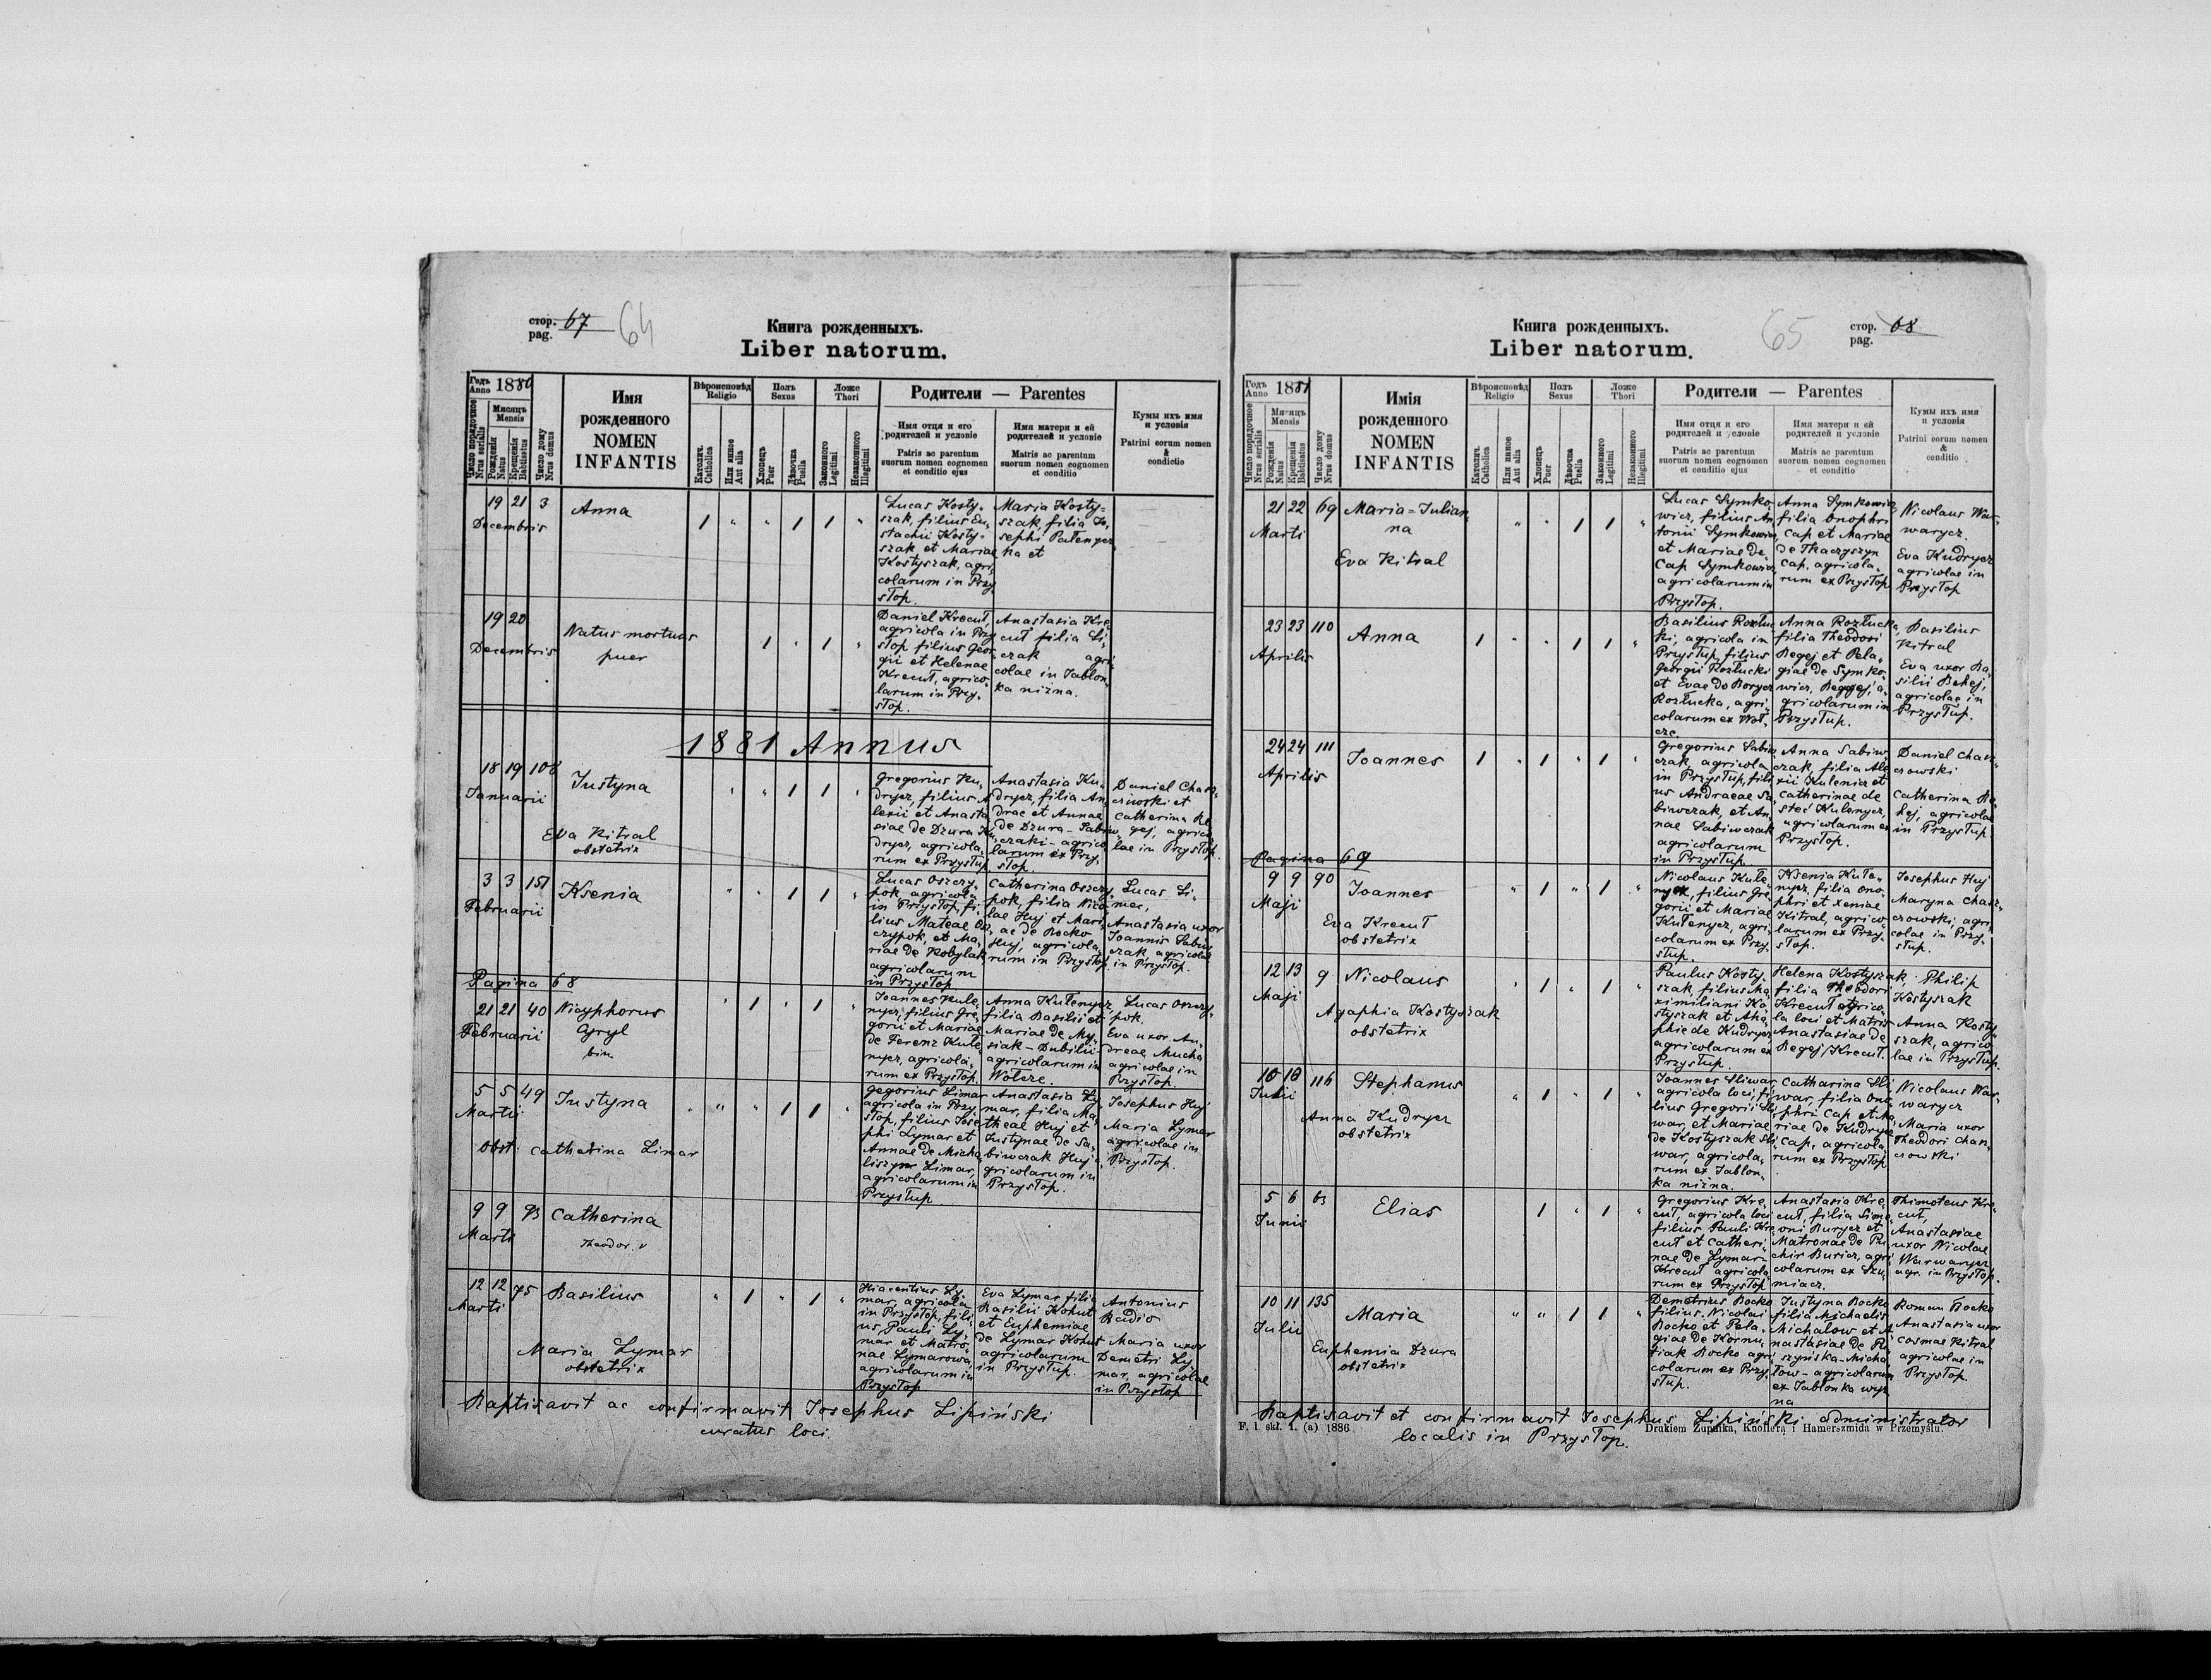 стор. 67 64
pag.
Книга рожденныхъ.
Liber natorum.
Годъ 1880
Anno
Число порядочное
Nrus serialis
Мѣсяцъ
Mensis
Рожденія
Natus
Крещенія
Babtisatus
Число дому
Nrus domus
Имя
рожденного
NOMEN
INFANTIS
Вѣроисповѣд
Religio
Католич.
Catholica
Или инное
Aut alia
Полъ
Sexus
Хлопецъ
Puer
Дѣвочка
Puella
Ложе
Thori
Законного
Legitimi
Незаконного
Illegitimi
Родители — Parentes
Имя отця и его
родителей и условіе
Patris ac parentum
suorum nomen cognomen
et conditio ejus
Имя матери и ей
родителей и условіе
Matris ac parentum
suorum nomen cognomen
et conditio
Кумы ихъ имя
и условія
Patrini eorum nomen
&
condictio
19 21 3
Decembris
Anna
1 " " 1 1 "
Lucas Kosty-
szak, filius Eu-
stachii Kosty-
szak et Mariae
Kostyszak, agri-
colarum in Przy-
stop.
Maria Kosty-
szak, filia Jo-
sephi
na et
19 20
Decembris
Natus mortuus
puer
1 " 1 "
Daniel Krecut,
agricola in Przy
stop filius Geor-
gii et Helenae
Krecut, agrico-
larum in Przy-
stop.
Anastasia Kre-
cut filia Li-
czak agri-
colae in Jablon-
ka nizna.
1881 Annus
18 19 108
Januarii
Justyna
Eva Kitral
obstetrix
" " 1 1 "
Gregorius Ku-
drycz, filius A-
lexii et Anasta-
siae de Dzura Ku-
drycz, agricola-
rum ex Przystup
Anastasia Ku-
drycz, filia An-
drae et Annae
de Dzura - Sabiw-
czaki - agrico-
larum ex Przy-
stop.
Daniel Chasz-
czowski et
Catherina Be
gej, agrico-
lae in Przystop.
3 3 151
Februarii
Ksenia
" " 1 1 "
Lucas Oszczy-
pok, agricola
in Przystop, fi-
lius Mateae Os-
czypok, et Ma-
riae de Kobylak
agricolarum
in Przystop
Catherina Oszczy-
pok, filia Nico-
lae Huj et Mari-
ae de Bocko
Huj, agricola-
rum in Przystop
Lucas Li-
mec,
Anastasia uxor
Joannis Sabiw-
czak, agricolae
in Przystop.
Pagina 68
21 21 40
Februarii
Nicyphorus
Cyryl
bin.
" 1 " 1 "
Joannes Kule-
nycz, filius Gre-
gorii et Mariae
de Ferenz Kule-
nycz, agricola-
rum ex Przystop.
Anna Kulenycz,
filia Basilii et
Mariae de My-
siak - Dubilij
agricolarum in
Wolcze.
Lucas Oszczy-
pok,
Eva uxor An-
dreae Mucha
agricolae in
Przystop.
5 5 49
Martii
Justyna
Obst. Catherina Limar
" " " 1 1 "
Gegorius Limar
agricola in Przy-
stop, filius Jose-
phi Lymar et
Annae de Micha-
liszyn Limar,
agricolarum in
Przystup
Anastasia Ly-
mar, filia Ma-
theae Huj et
Justynae de Sa-
biwczak Huj a-
gricolarum in
Przystop.
Josephus Huj
Maria Lymar
agricolae in
Przystop.
9 9 93
Marti
Catherina
Theodor.
12 12 75
Marti
Basilius
Maria Lymar
obstetrix
" 1 " 1 "
Hiacentius Ly-
mar, agricola
in Przystop, fili-
us Pauli Ly-
mar et Matro-
nae Lymarowa,
agricolarum in
Przystop
Eva Lymar filia
Basilii Kohut
et Euphemiae
de Lymar Kohut
agricolarum
in Przystup.
Antonius
Badio
Maria uxor
Demetri Ly-
mar, agricolae
in Przystop
Baptisavit ac confirmavit Josephus Lipiński
curatus loci.
Книга рожденныхъ.
Liber natorum.
65 стор. 68
pag.
Годъ 1881
Anno
Число порядочное
Nrus serialis
Мѣсяцъ
Mensis
Рожденія
Natus
Крещенія
Babtisatus
Число дому
Nrus domus
Имія
рожденного
NOMEN
INFANTIS
Вѣроисповѣд
Religio
Католич.
Catholica
Или инное
Aut alia
Полъ
Sexus
Хлопецъ
Puer
Дѣвочка
Puella
Ложе
Thori
Законного
Legitimi
Незаконного
Illegitimi
Родители — Parentes
Имя отця и его
родителей и условіе
Patris ac parentum
suorum nomen cognomen
et conditio ejus
Имя матери и ей
родителей и условіе
Matris ac parentum
suorum nomen cognomen
et conditio
Кумы ихъ имя
и условія
Patrini eorum nomen
&
conditio
21 22 69
Marti
Maria-Julian-
na
Eva Kitral
" " 1 1 "
Lucas Symko-
wicz, filius An
tonii Symkowicz
et Mariae de
Cap Symkowicz
agricolarum in
Przystop.
Anna Symkowicz
filia Onophri
Cap et Mariae
de Tkaczyszyn
Cap, agricola-
rum ex Przystop
Nicolaus War-
warycz.
Eva Kudrycz
agricolae in
Przystop
23 23 110
Aprilis
Anna
1 " " 1 1 "
Basilius Rozluc-
ki, agricola in
Przystup, filius
Georgii Rozlucki
et Evae do Borycz
Rozlucka, agri-
colarum ex Wol-
cze.
Anna Rozlucka,
filia Theodosi
Begej et Pela-
giae de Symko-
wicz, Begej, a-
gricolarum in
Przystup.
Basilius
Kitral
Eva uxor Ba-
silii Behej,
agricolae in
Przystup.
24 24 111
Aprilis
Joannes
1 " 1 " 1 "
Gregorius Sabiw-
czak, agricola
in Przystup, fili-
us Andraeae Sa-
biwczak, et An-
nae Sabiwczak
agricolarum
in Przystup.
Anna Sabiw-
czak, filia Ale
xii Kulenicz et
Catherinae de
Steć Kulenycz,
agricolarum ex
Przystop.
Daniel Chasz-
czowski
Catherina Be-
hej, agricolae
in Przystup.
Pagina 69
9 9 90
Maji
Joannes
Eva Krecut
obstetrix
" 1 " 1 "
Nicolaus Kule-
nycz, filius Gre-
gorii et Mariae
Kulenycz, agri-
colarum ex Przy-
stup.
Ksenia Kule-
nycz, filia Ono-
phri et Xeniae
Kitral, agrico-
larum ex Przy-
stop.
Josephus Huj
Maryna Chasz-
czowski, agri-
colae in Przy-
stup.
12 13 9
Maji
Nicolaus
Agaphia Kostyszak
obstetrix
" 1 " 1 "
Paulus Kosty-
szak filius Ma-
ximiliani Ko-
styszak et Aha-
phie de Kudrycz
agricolarum ex
Przystup.
Helena Kostyszak,
filia Theodori
Krecut agrico-
la loci et Matris
Anastasiae de
Begej/Krecut.
Philip
Kostyszak
Anna Kosty-
szak, agrico-
lae in Przystup.
10 10 116
Julii
Stephanus
Anna Kudrycz
obstetrix
" 1 " 1 "
Joannes Sliwar
agricola loci, fi-
lius Gregorii Sli-
war, et Mariae
de Kostyszak Sli-
war, agricola-
rum ex Jablon-
ka nizna.
Catharina Sli-
war, filia Ono-
phri Cap et Ma-
riae de Kudrycz
Cap, agricola-
rum ex Przystop
Nicolaus War-
warycz
Maria uxor
Theodori Chasz-
czowski
5 6 63
Junii
Elias
1 " 1 "
Gregorius Kre-
cut, agricola loci
filius Pauli Kre-
cut et Catheri-
nae de Lymar
Krecut agricola-
rum ex Przystop
Anastasia Kre-
cut, filia Simo-
oni Burycz et
Matronae de Pu-
chir Buricz, agri-
colarum ex Szu-
miacz.
Thimoteus Kre-
cut,
Anastasiae
uxor Nicolae
Warwarycz
agr. in Przystop.
10 11 135
Julii
Maria
Euphemia Dzura
obstetrix
" " 1 1 "
Demetrius Bocko
filius Nicolai
Bocko et Pela-
giae de Kornu-
tiak Bocko agri-
colarum ex Przy-
stup.
Justyna Bocko
filia Michaelis
Michalow et A-
nastasiae de Ry-
szyńska-Micha-
low - agricolarum
ex Jablonka wyz-
na
Roman Bocko
Anastasia uxor
Cosmae Kitral
agricolae in
Przystop.
Baptisavit et confirmavit Josephus Lipiński administrator
localis in Przystop.
F. 1 skł. 1. (a) 1886
Drukiem Żupnika, Knollera i Hamerszmida w Przemyślu.